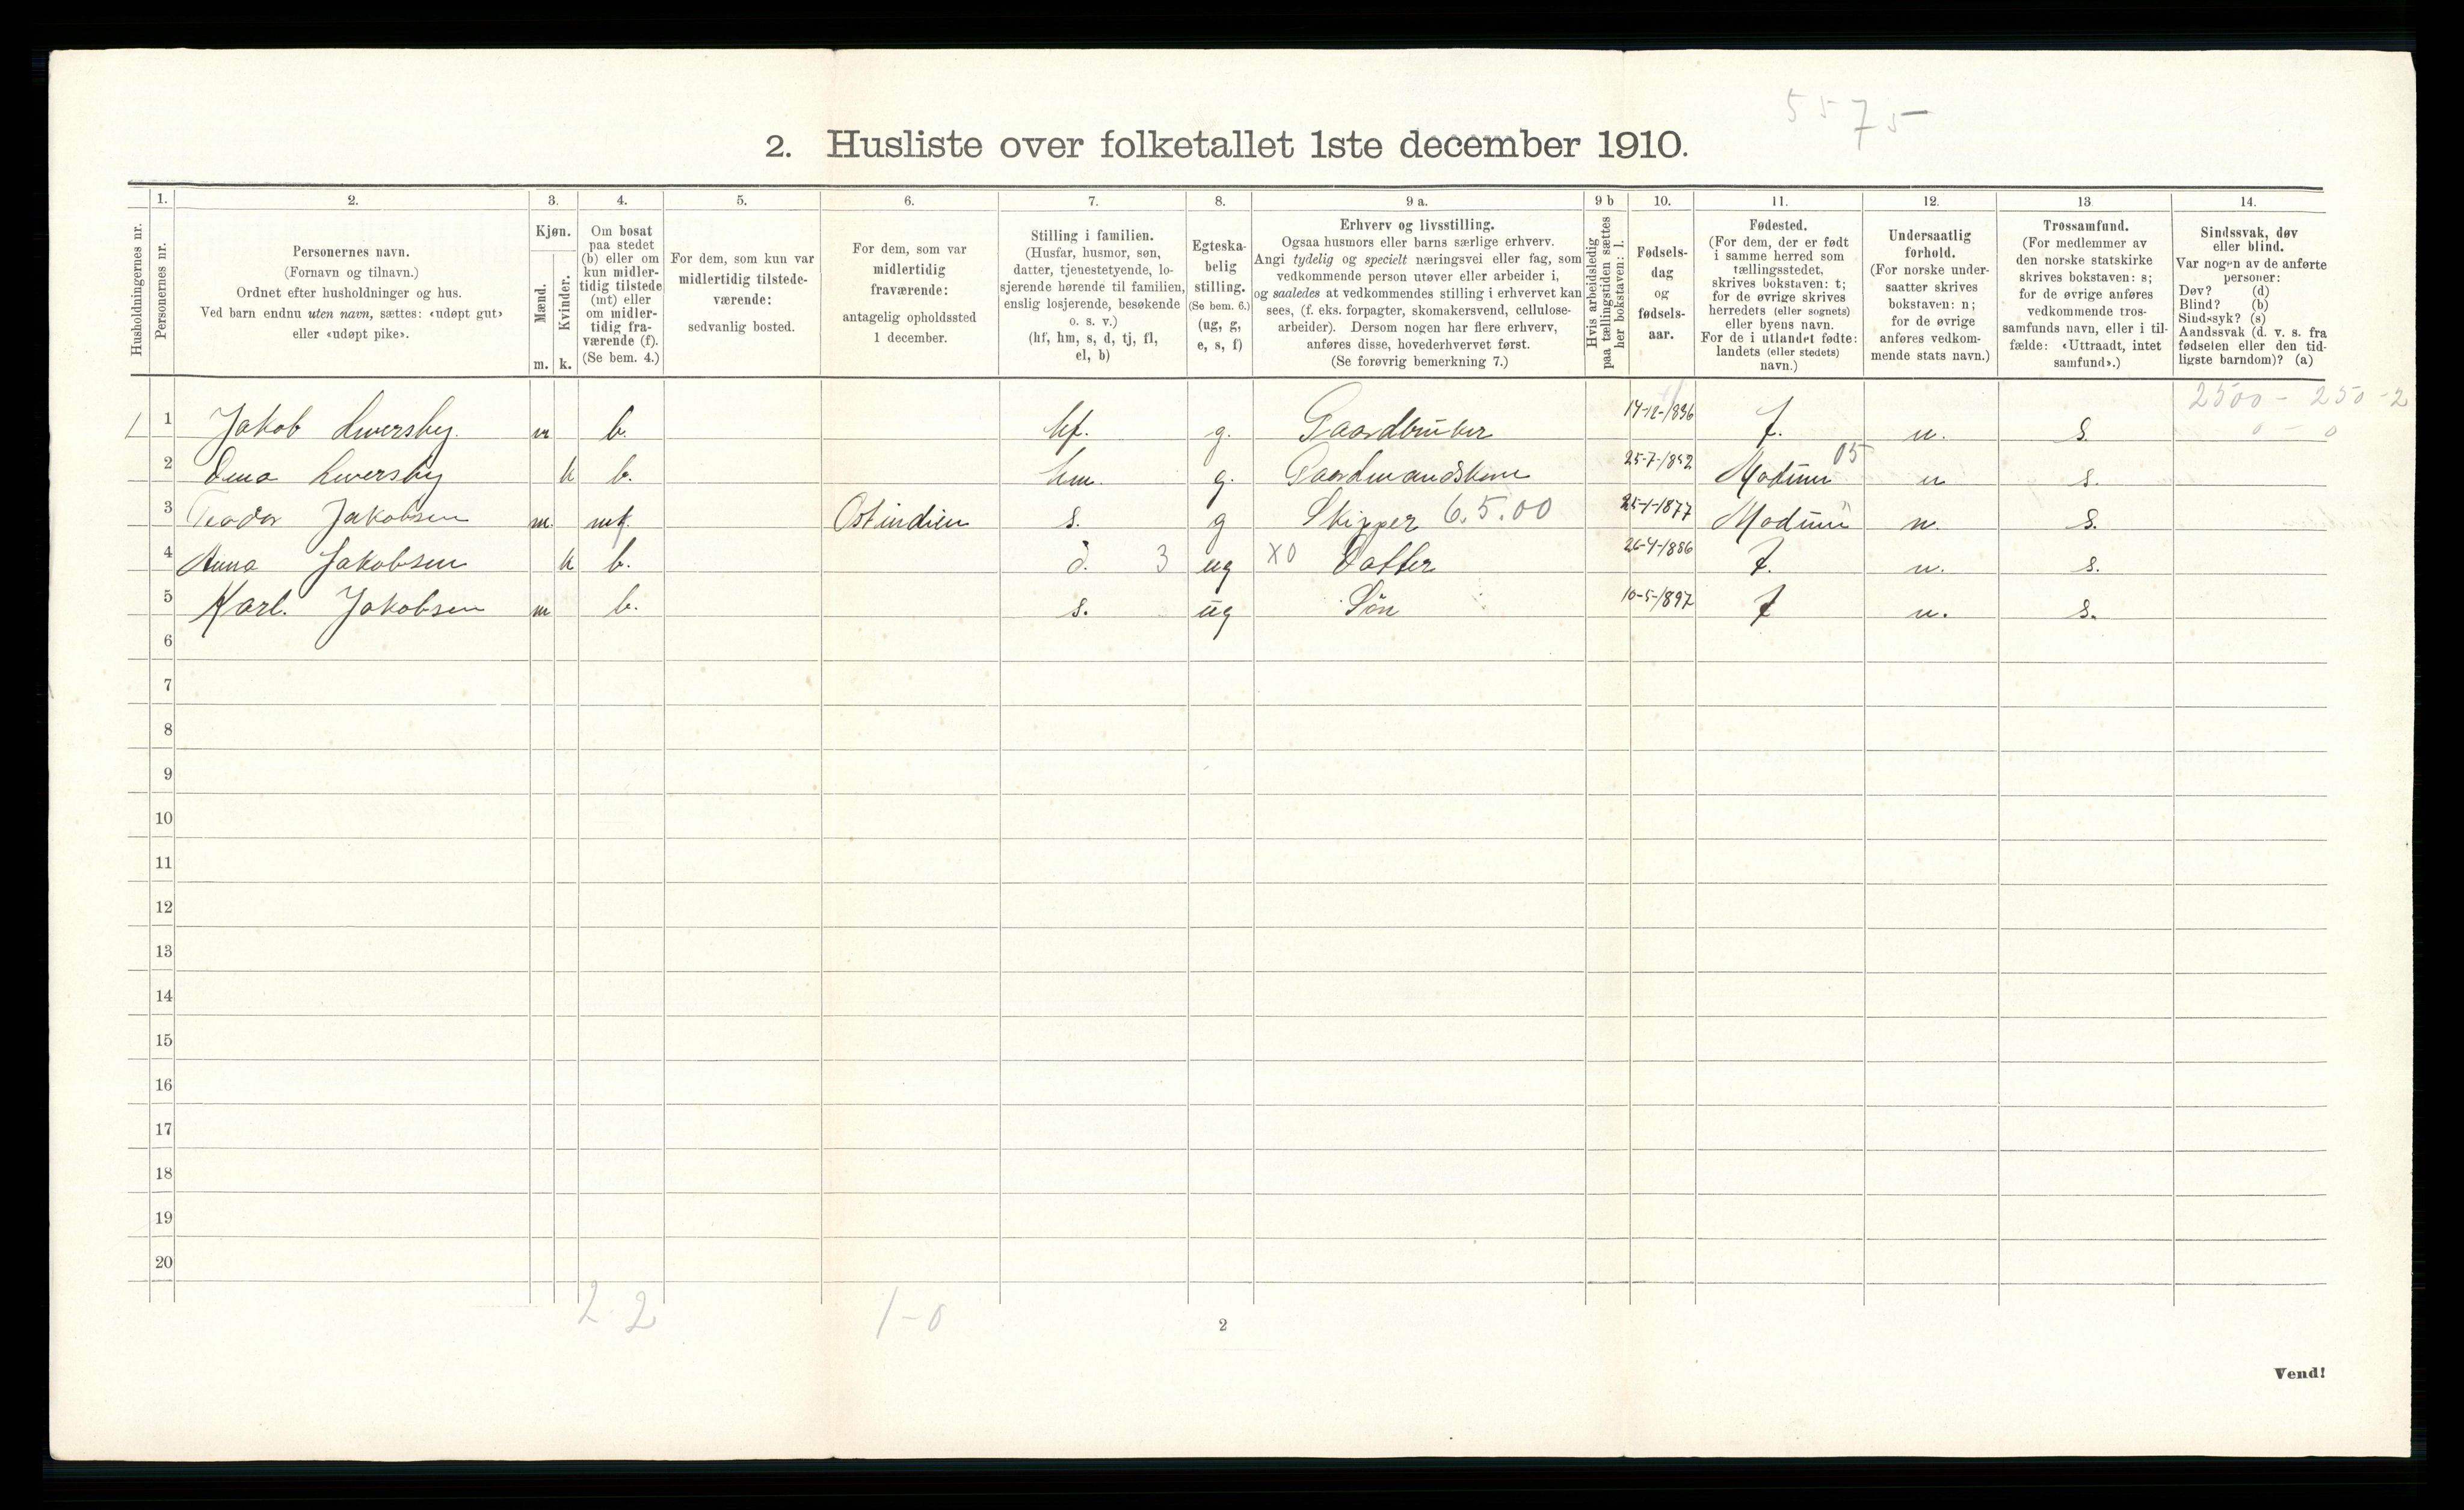 5575
2. Husliste over folketallet 1ste december 1910.
1. 2. 3. 4. 5. 6. 7. 8. 9 a. 9 b 10. 11. 12. 13 14.
Husholdningernes nr.
Personernes nr.
Personernes navn.
(Fornavn og tilnavn.)
Ordnet efter husholdninger og hus.
Ved barn endnu uten navn, sættes: «udøpt gut»
eller «udøpt pike».
Kjøn.
Mænd.
Kvinder.
m. k.
Om bosat
paa stedet
(b) eller om
kun midler-
tidig tilstede
(mt) eller
om midler-
tidig fra-
værende (f).
(Se bem. 4.)
For dem, som kun var
midlertidig tilstede-
værende:
sedvanlig bosted.
For dem, som var
midlertidig
fraværende:
antagelig opholdssted
1 december.
Stilling i familien.
(Husfar, husmor, søn,
datter, tjenestetyende, lo-
sjerende hørende til familien,
enslig losjerende, besøkende
o. s. v.)
(hf, hm, s, d, tj, fl,
el, b)
Egteska-
belig
stilling.
(Se bem. 6.)
(ug, g,
e, s, f)
Erhverv og livsstilling.
Ogsaa husmors eller barns særlige erhverv.
Angi tydelig og specielt næringsvei eller fag, som
vedkommende person utøver eller arbeider i,
og saaledes at vedkommendes stilling i erhvervet kan
sees, (f. eks. forpagter, skomakersvend, cellulose-
arbeider). Dersom nogen har flere erhverv,
anføres disse, hovederhvervet først.
(Se forøvrig bemerkning 7.)
Hvis arbeidsledig
paa tællingstiden sættes
her bokstaven: l.
Fødsels-
dag
og
fødsels-
aar.
Fødested.
(For dem, der er født
i samme herred som
tællingsstedet,
skrives bokstaven: t;
for de øvrige skrives
herredets (eller sognets)
eller byens navn.
For de i utlandet fødte:
landets (eller stedets)
navn.)
Undersaatlig
forhold.
(For norske under-
saatter skrives
bokstaven: n;
for de øvrige
anføres vedkom-
mende stats navn.)
Trossamfund.
(For medlemmer av
den norske statskirke
skrives bokstaven: s;
for de øvrige anføres
vedkommende tros-
samfunds navn, eller i til-
fælde: «Uttraadt, intet
samfund».)
Sindssvak, døv
eller blind.
Var nogen av de anførte
personer:
Døv? (d)
Blind? (b)
Sindssyk? (s)
Aandssvak (d. v. s. fra
fødselen eller den tid-
ligste barndom)? (a)
2500 - 250 - 2
0 - 0
1 Jakob m b. hf. g. Gaardbruker t. n. s.
2 k b. hm. g. 25-7-1852 Modum 05 n s.
3 Teodor Jakobsen m. mf. Ostindien s. g Skipper 6.5.00 25-1-1877 Modum " n. s.
4 Anna Jakobsen k b. d. 3 ug X0 Datter 26-4-1886 t. n. s.
5 Karl. Jakobsen m b. s. ug Søn 10-5-1897 t n. s.
6
7
8
9
10
11
12
13
14
15
16
17
18
19
20
2 · 2 1-0
2
Vend!